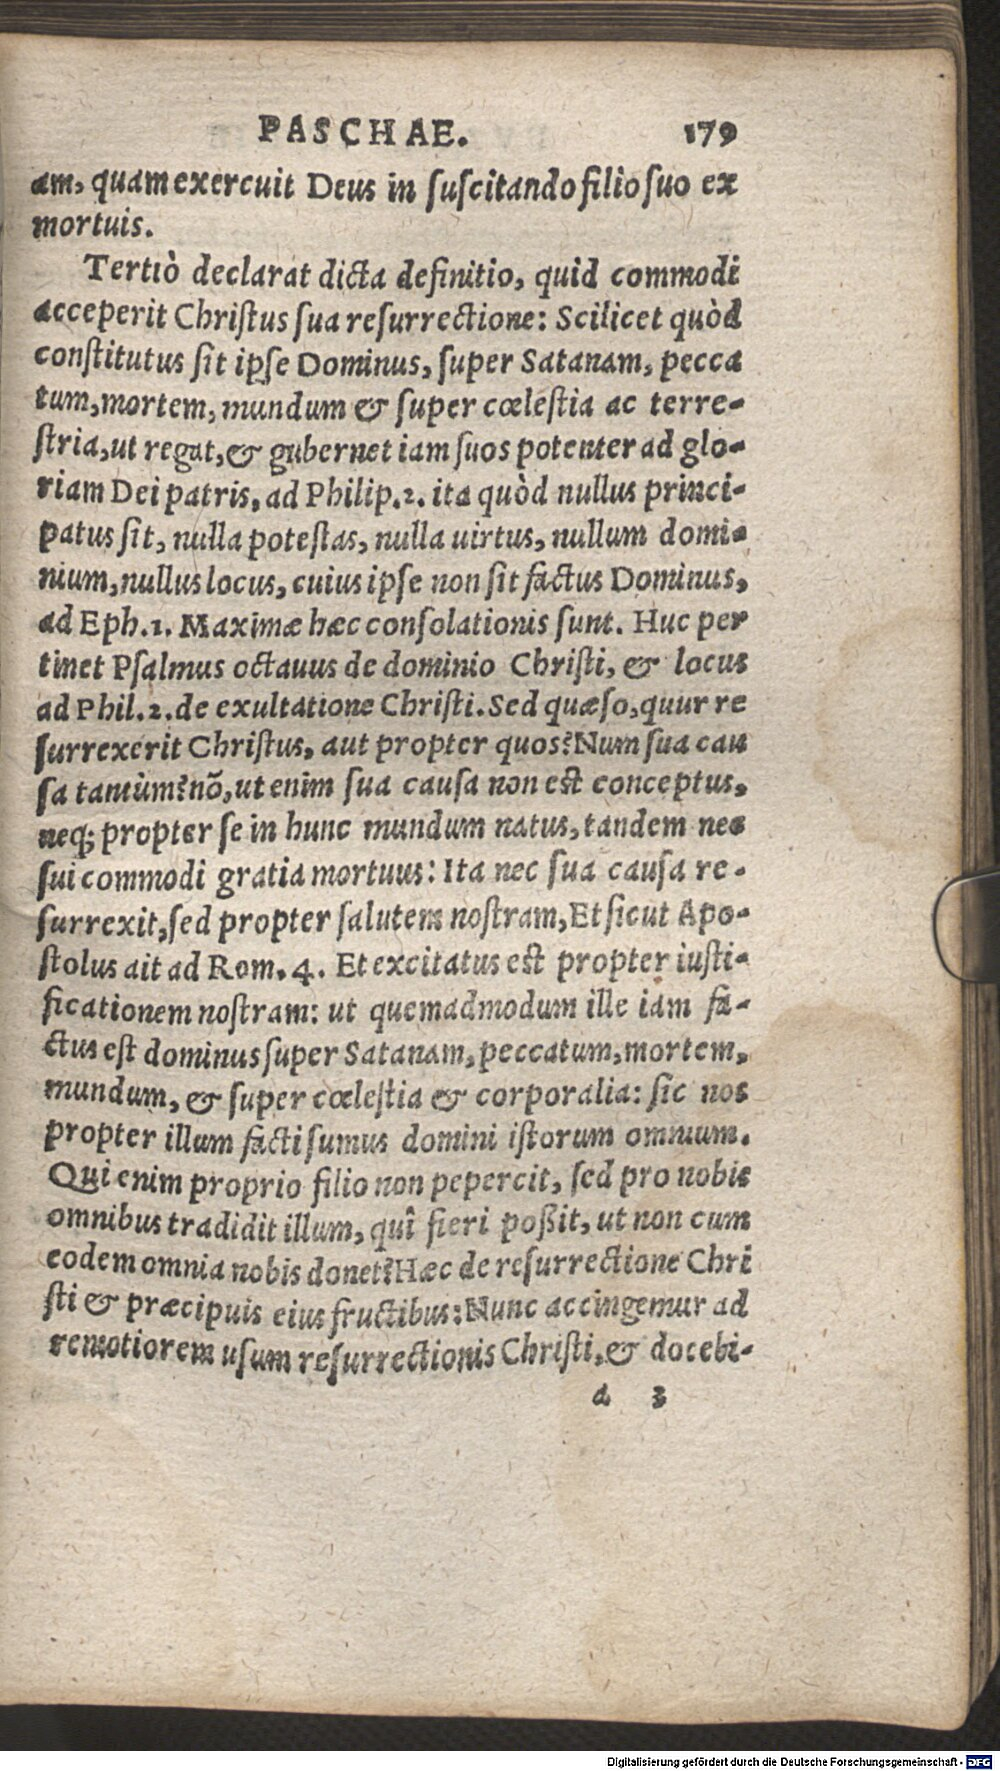 PASCHAE. 179
am, quam exercuit Deus in ſuſcitando filio ſuo ex
mortuis.
Tertiò declarat dicta definitio, quid commodi
acceperit Chriſtus ſua reſurrectione: Scilicet quòd
conſtitutus ſit ipſe Dominus, ſuper Satanam, pecca
tum, mortem, mundum & ſuper cœleſtia ac terre-
ſtria, ut regat, & gubernet iam ſuos potenter ad glo-
riam Dei patris, ad Philip.2. ita quòd nullus princi-
patus ſit, nulla poteſtas, nulla uirtus, nullum domi-
nium, nullus locus, cuius ipſe non ſit factus Dominus,
ad Eph.1. Maximæ hæc conſolationis ſunt. Huc per
tinet Pſalmus octauus de dominio Chriſti, & locus
ad Phil.2. de exultatione Chriſti. Sed quæſo, quur re
ſurrexerit Chriſtus, aut propter quos? Num ſua cau
ſa tantùm? nõ, ut enim ſua cauſa non eſt conceptus,
neq; propter ſe in hunc mundum natus, tandem nec
ſui commodi gratia mortuus: Ita nec ſua cauſa re-
ſurrexit, ſed propter ſalutem noſtram, Et ſicut Apo-
ſtolus ait ad Rom. 4. Et excitatus eſt propter iuſti-
ficationem noſtram: ut quemadmodum ille iam fa-
ctus eſt dominus ſuper Satanam, peccatum, mortem,
mundum, & ſuper cœleſtia & corporalia: ſic nos
propter illum facti ſumus domini iſtorum omnium.
Qui enim proprio filio non pepercit, ſed pro nobis
omnibus tradidit illum, quî fieri poßit, ut non cum
eodem omnia nobis donet? Hæc de reſurrectione Chri
ſti & præcipuis eius fructibus: Nunc accingemur ad
remotiorem uſum reſurrectionis Chriſti, & docebi-
d 3
Digitalisierung gefördert durch die Deutsche Forschungsgemeinschaft - DFG